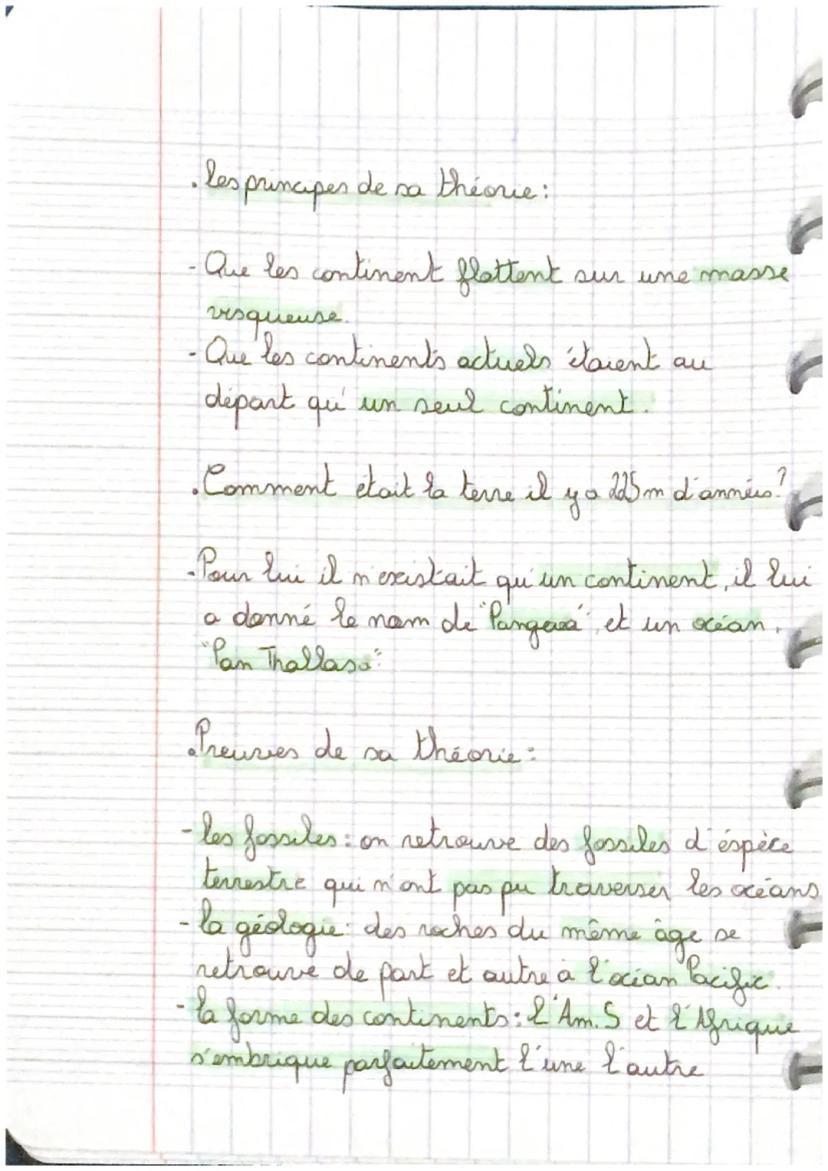 . les principes de sa théorie :
- Que les continent flottent sur une masse
visqueuse.
- Que les continents actuels étaient au
départ qu' un seul continent.
. Comment etait la terre il y a 225 m d'années ?
- Pour lui il n'existait qu'un continent, il lui
a donné le nom de "Pangeaa", et un océan,
"Pan Thallasa".
. Preuves de sa théorie :
- les fossiles : on retrouve des fossiles d'éspèce
terrestre qui n'ont pas pu traverser les océans
- la géologie : des roches du même âge se
retrouve de part et autre à l'océan Pacific.
- la forme des continents : l'Am.S et l'Afrique
s'embrique parfaitement l'une l'autre